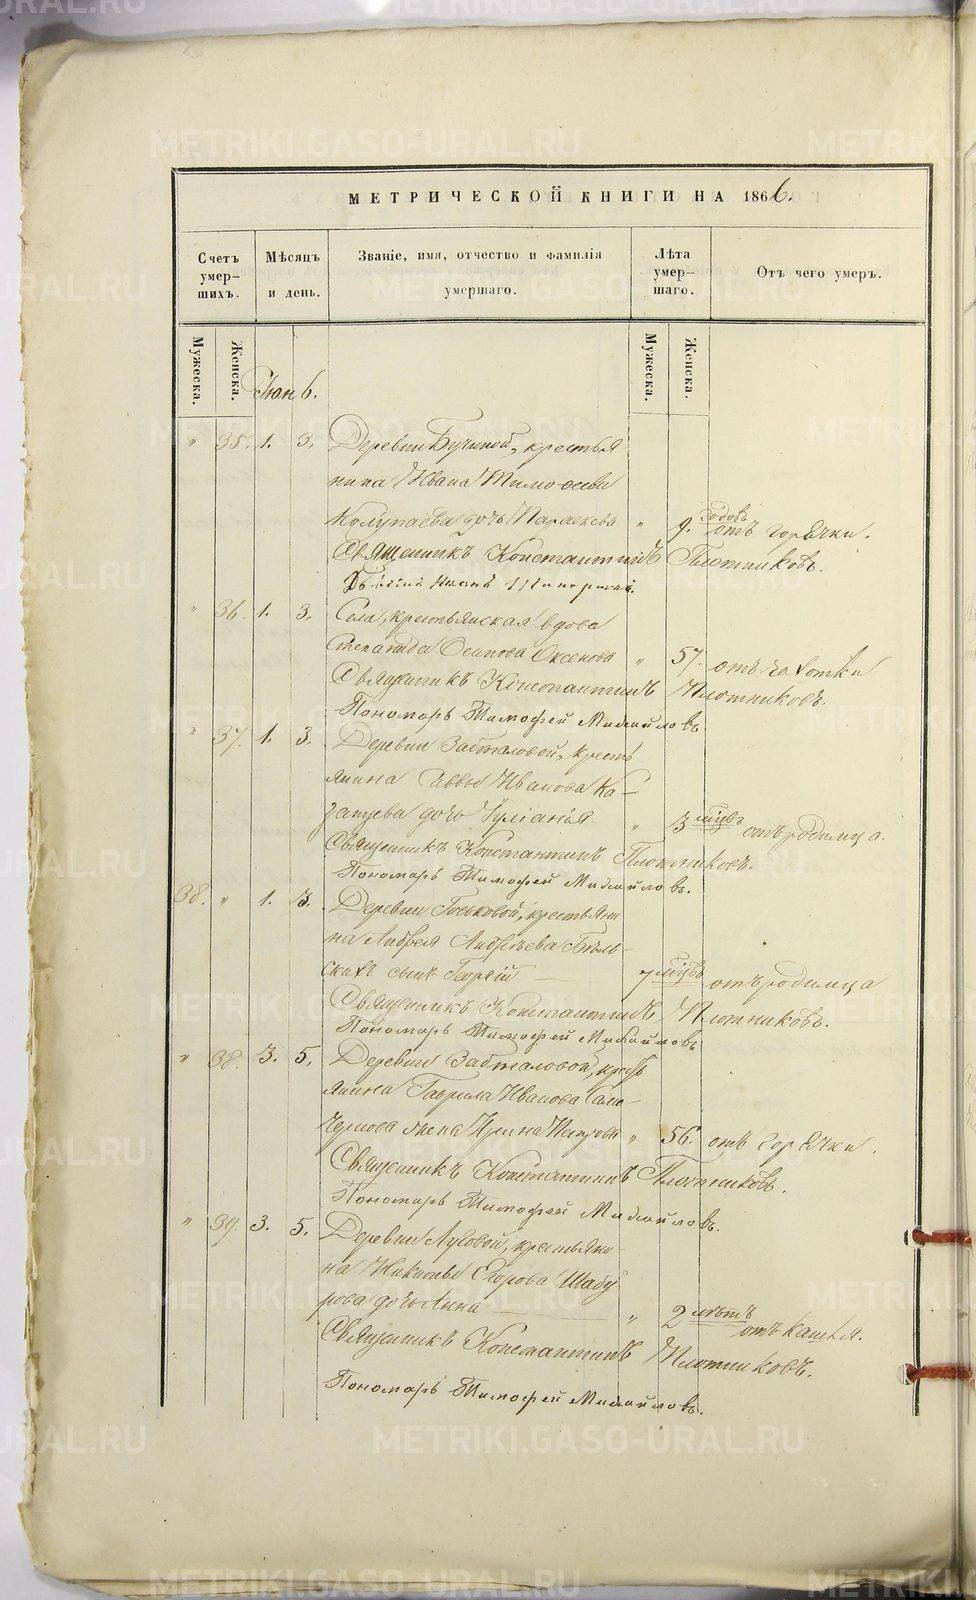 МЕТРИЧЕСКОЙ КНИГИ НА 1866.
Счетъ умер-шихъ.
Мѣсяцъ и день.
Званіе, имя, отчество и фамилія умершаго.
Лѣта умер-шаго.
Отъ чего умеръ.
Мужеска.
Женска.
Мужеска.
Женска.
Іюнь.
" 35. 1. 3. Деревни Бучиной, крестья
нина Ивана Тимофеева
Колупаева дочь Параскева " 9. годовъ отъ горячки.
Священникъ Константинъ Плотниковъ.
" 36. 1. 3. Села, крестьянская вдова
Степанида Осипова Аксенова " 57. отъ чахотки
Священникъ Константинъ Плотниковъ.
Пономарь Тимофей Михайловъ.
" 37. 1. 3. Деревни Забталовой, кресть
янина Саввы Иванова Ка-
занцева дочь Іуліанія " 3 мѣсцъ отъ родимца.
Священникъ Константинъ Плотниковъ.
Пономарь Тимофей Михайловъ.
38. " 1. 3. Деревни Гуськовой, крестьяни
на Андрея Андреева Бѣль-
скихъ сынъ Георгій 7 мѣсцвъ отъ родимца
Священникъ Константинъ Плотниковъ.
Пономарь Тимофей Михайловъ
" 38. 3. 5. Деревни Забталовой, крест
янина Гаврила Иванова Само-
чернова жена Ирина Петрова " 56. отъ горячки.
Священникъ Константинъ Плотниковъ.
Пономарь Тимофей Михайловъ.
" 39. 3. 5. Деревни Луговой, крестьяни-
на Никиты Егорова Шабу
рова дочь Анна " 2 лѣтъ отъ кашля.
Священникъ Константинъ Плотниковъ.
Пономарь Тимофей Михайловъ.
METRIKI.GASO-URAL.RU